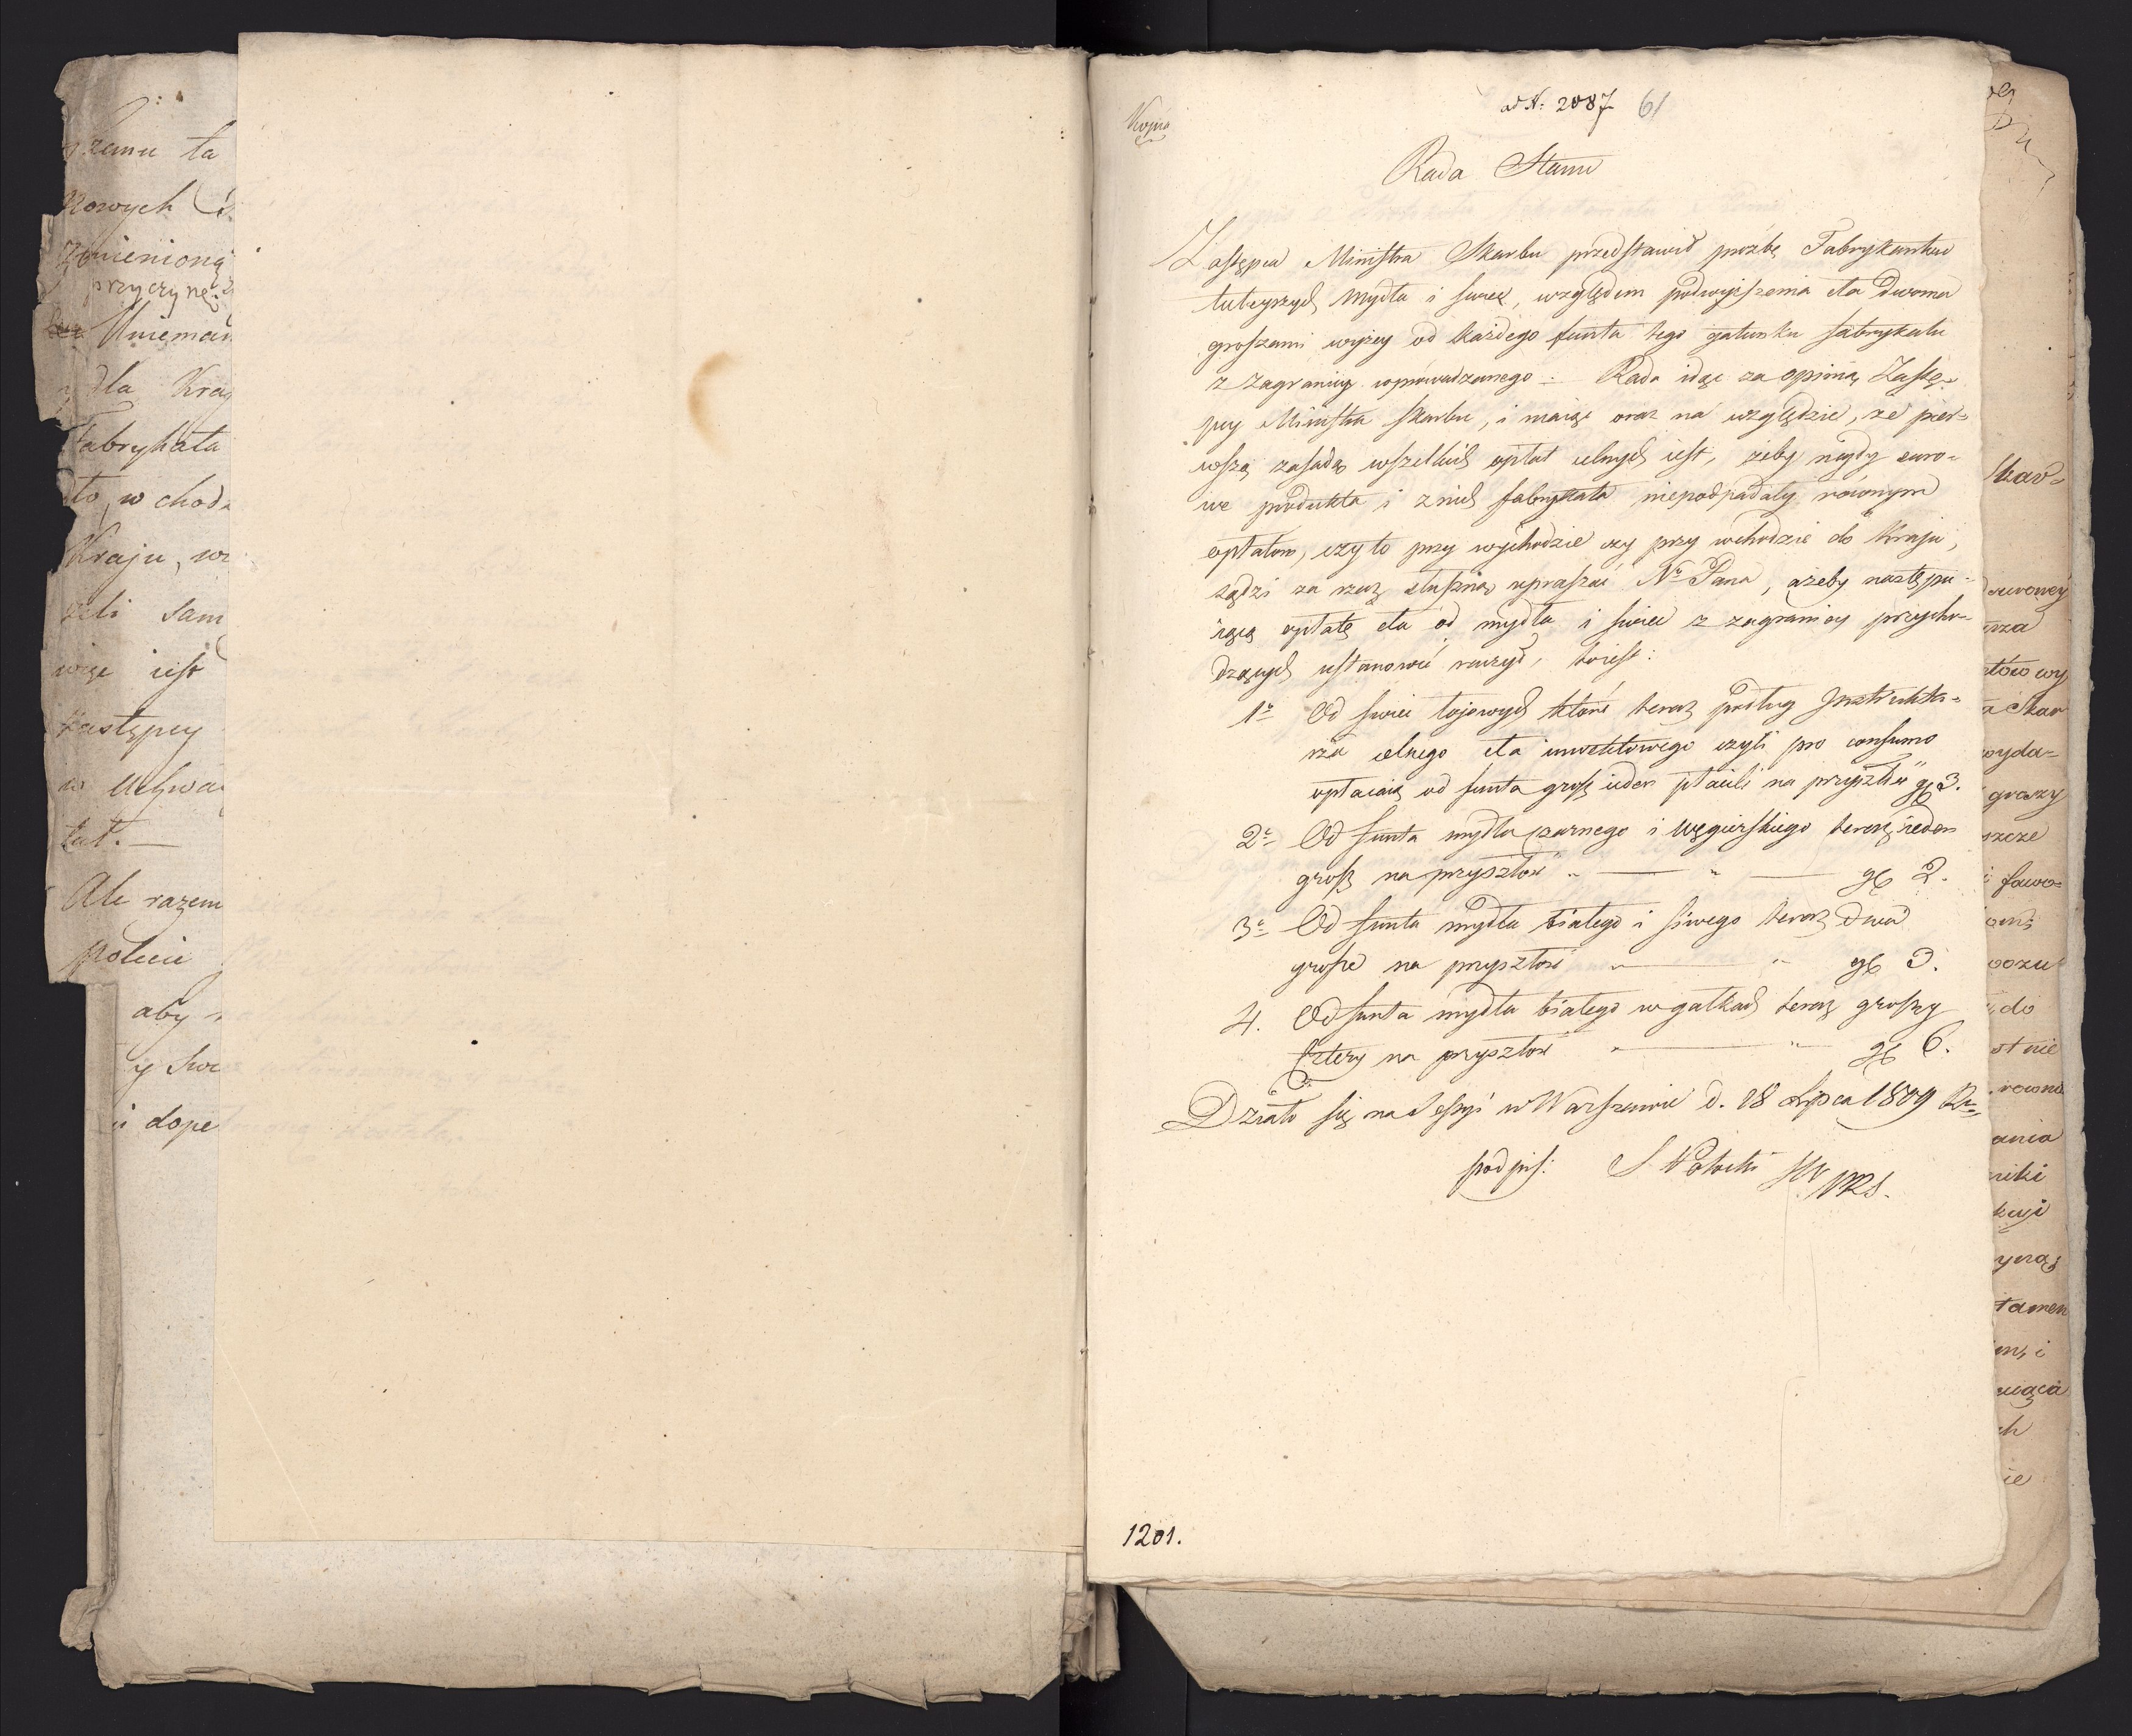 żemu ta
nowych
zmienioną
przyczynę
Uniemai
dla Kra
Fabrykata
to, w chod
Kraju, w
żeli sam
więc iest
Zastępcy
w Uchwa
tut. —
Ale razem
polecić
aby
y Św
i dope
Kopia
ad N: 2087 61
Rada Stanu
Zastępca Ministra Skarbu przedstawił prożbę Fabrykantów
tuteyszych mydła i swiec, względem podwyższenia cła dwoma
groszami wyżey od każdego funta tego gatunku fabrykatu
z zagranicy wprowadzonego. Rada idąc za opinią Zastę-
pcy Ministra Skarbu, i maiąc oraz na względzie, że pier-
wszą zasadą wszelkich opłat celnych iest, żeby nigdy suro-
we produkta i z nich fabrykata niepodpadały równym
opłatom, czyto przy wychodzie czy przy wchodzie do Kraju,
sądzi za rzecz słuszną upraszać N. Pana, ażeby następu-
iącą opłatę cła od mydła i swiec z zagranicy przycho-
dzących ustanowić raczył, toiest:
1o Od swiec łojowych które teraz podług Instrukta-
rza celnego cła inwektowego czyli pro consumo
opłacaią od funta grosz ieden płacili na przyszłość gr 3.
2o Od funta mydła czarnego i węgierskiego teraz ieden
grosz na przyszłość " — " — gr 2.
3o Od funta mydła białego i siwego teraz dwa
grosze na przyszłość " — " gr 3.
4. Od funta mydła białego w gałkach teraz groszy
Cztery na przyszłość " — " gr 6.
Działo się na Sessyi w Warszawie d. 18 Lipca 1809 R.
podpis: S. Potocki
1201.
Skar-
surowey
rza
tów wy
a Skar
wyda-
groszy
szcze
fawo-
oni
oozu
do
st nie
rowno
ania
niki
kcyi
yną
tamen
ni i
niąca
ch
ie